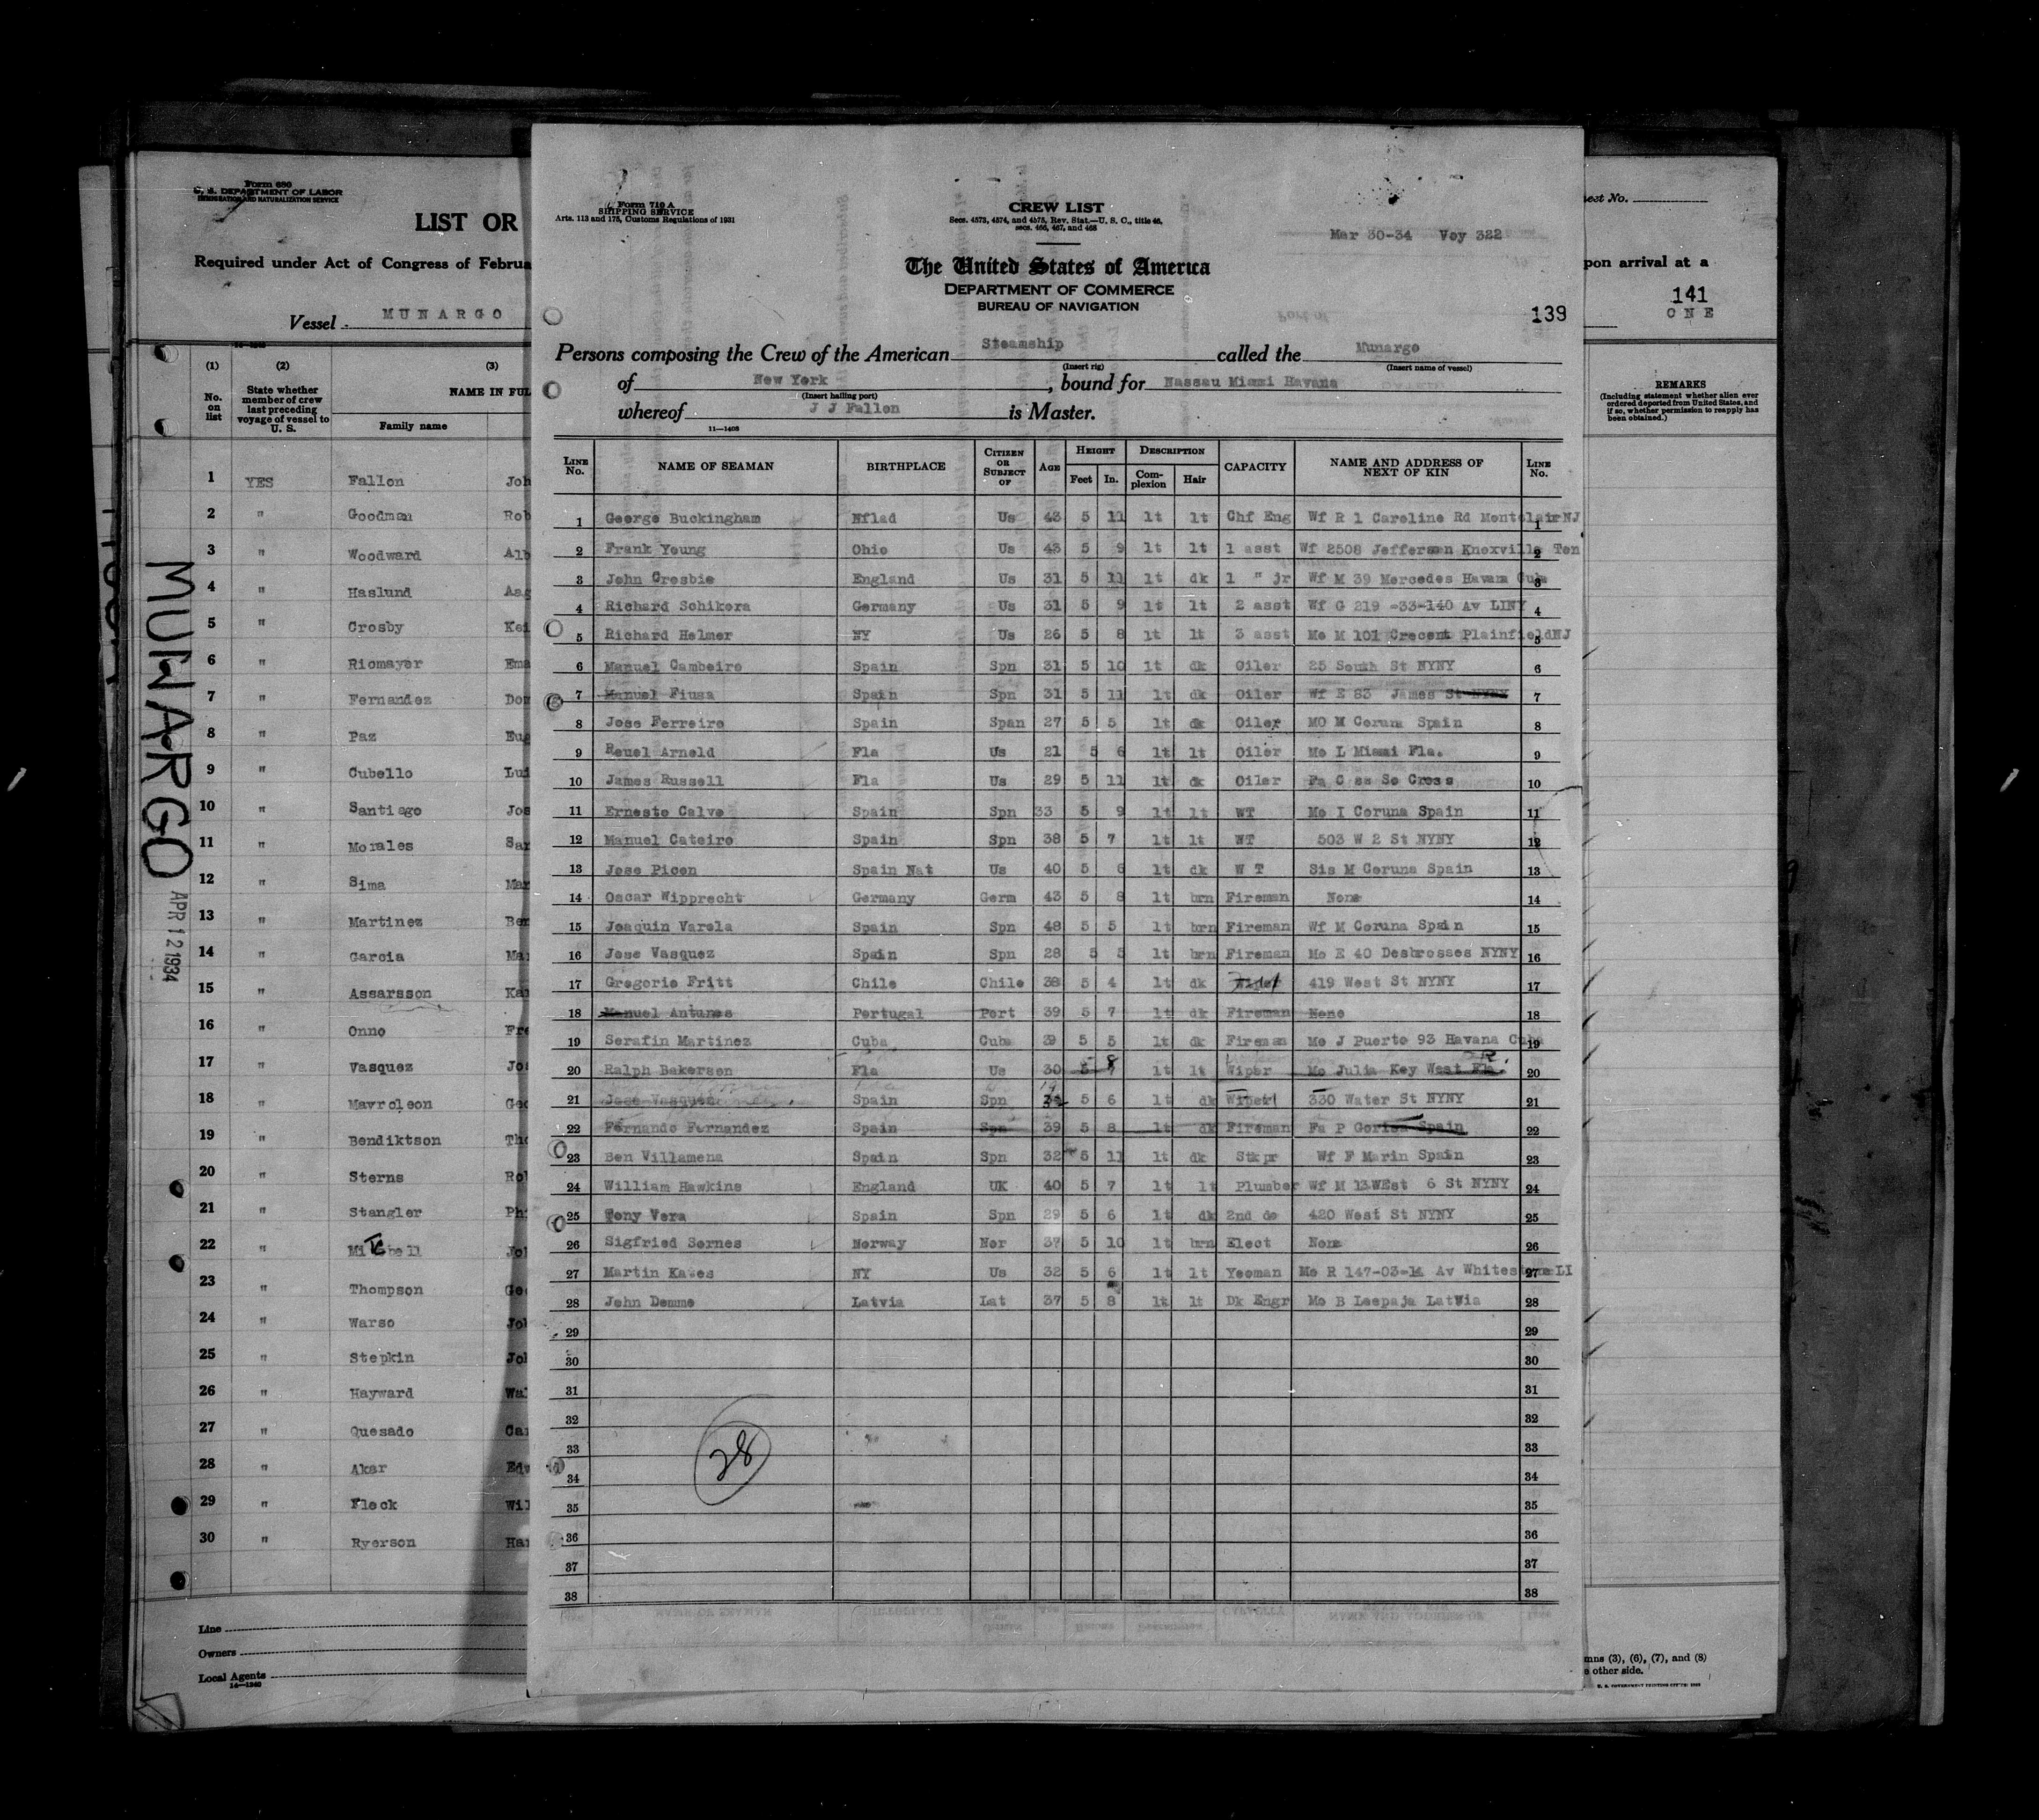 Form 680
U. S. DEPARTMENT OF LABOR
IMMIGRATION AND NATURALIZATION SERVICE
LIST OR
Required under Act of Congress of Februa
Vessel MUNARGO
(1) (2) (3)
No. on list
State whether member of crew last preceding voyage of vessel to U. S.
NAME IN FUL
Family name
1 YES Fallon Joh
2 " Goodman Rob
3 " Woodward Alb
4 " Haslund Aag
5 " Crosby Kei
6 " Riomayer Ema
7 " Fernandez Dom
8 " Paz Eug
9 " Cubello Lui
10 " Santiago Jos
11 " Morales Sar
12 " Sima Mar
13 " Martinez Ber
14 " Garcia Ma
15 " Assarsson Ka
16 " Onno Fre
17 " Vasquez Jo
18 " Mavroleon Geo
19 " Bendiktson Tho
20 " Sterns Ro
21 " Stangler Ph
22 " Mitchell Jo
23 " Thompson Ge
24 " Warso Jo
25 " Stepkin Jo
26 " Hayward Wa
27 " Quesado Ca
28 " Aker Edw
29 " Fleck Wil
30 " Ryerson Ha
Line
Owners
Local Agents
14—1240
MUNARGO
APR 12 1934
Form 710 A
SHIPPING SERVICE
Arts. 113 and 175, Customs Regulations of 1931
CREW LIST
Secs. 4573, 4574, and 4575, Rev. Stat.—U. S. C., title 46,
secs. 466, 467, and 468
Mar 30-34 Voy 322
The United States of America
DEPARTMENT OF COMMERCE
BUREAU OF NAVIGATION
139
Persons composing the Crew of the American Steamship called the Munargo
(Insert rig) (Insert name of vessel)
of New York, bound for Nassau Miami Havana
(Insert hailing port)
whereof J J Fallon is Master.
11—1408
LINE No. NAME OF SEAMAN BIRTHPLACE CITIZEN OR SUBJECT OF AGE HEIGHT Feet In. DESCRIPTION Complexion Hair CAPACITY NAME AND ADDRESS OF NEXT OF KIN LINE No.
1 George Buckingham Nflad Us 43 5 11 lt lt Chf Eng Wf R 1 Caroline Rd Montclair NJ 1
2 Frank Young Ohio Us 43 5 9 lt lt 1 asst Wf 2508 Jefferson Knoxville Ten 2
3 John Crosbie England Us 31 5 11 lt dk 1 " jr Wf M 39 Mercedes Havana Cuba 3
4 Richard Schikora Germany Us 31 5 9 lt lt 2 asst Wf G 219 -33-140 Av LINY 4
5 Richard Helmer NY Us 26 5 8 lt lt 3 asst Mo M 101 Crecent Plainfield NJ 5
6 Manuel Cambeiro Spain Spn 31 5 10 lt dk Oiler 25 South St NYNY 6
7 Manuel Fiusa Spain Spn 31 5 11 lt dk Oiler Wf E 83 James St NYNY 7
8 Jose Ferreiro Spain Span 27 5 5 lt dk Oiler MO M Coruna Spain 8
9 Reuel Arnold Fla Us 21 5 6 lt lt Oiler Mo L Miami Fla. 9
10 James Russell Fla Us 29 5 11 lt dk Oiler Fa C ss So Cross 10
11 Ernesto Calvo Spain Spn 33 5 9 lt lt WT Mo I Coruna Spain 11
12 Manuel Cateiro Spain Spn 38 5 7 lt lt WT 503 W 2 St NYNY 12
13 Jose Picon Spain Nat Us 40 5 6 lt dk W T Sis M Coruna Spain 13
14 Oscar Wipprecht Germany Germ 43 5 8 lt brn Fireman None 14
15 Joaquin Varela Spain Spn 48 5 5 lt brn Fireman Wf M Coruna Spain 15
16 Jose Vasquez Spain Spn 28 5 5 lt brn Fireman Mo E 40 Desbrosses NYNY 16
17 Gregorio Fritt Chile Chile 38 5 4 lt dk 419 West St NYNY 17
18 Manuel Antunes Portugal Port 39 5 7 lt dk Fireman None 18
19 Serafin Martinez Cuba Cuba 29 5 5 lt dk Fireman Mo J Puerto 93 Havana Cuba 19
20 Ralph Bakersen Fla Us 30 5 8 lt lt Wiper Mo Julia Key West Fla. 20
21 Jose Spain Spn 5 6 lt dk Wiper 330 Water St NYNY 21
22 Fernando Fernandez Spain Spn 39 5 8 lt dk Fireman Fa P Spain 22
23 Ben Villamena Spain Spn 32 5 11 lt dk Stkpr Wf F Marin Spain 23
24 William Hawkins England UK 40 5 7 lt lt Plumber Wf M 13 WEst 6 St NYNY 24
25 Tony Vera Spain Spn 29 5 6 lt dk 2nd do 420 West St NYNY 25
26 Sigfried Sornes Norway Nor 37 5 10 lt brn Elect None 26
27 Martin Kawes NY Us 32 5 6 lt lt Yeoman Mo R 147-03-14 Av Whitestone LI 27
28 John Demme Latvia Lat 37 5 8 lt lt Dk Engr Mo B Leepaja Latvia 28
29 29
30 30
31 31
32 32
33 33
34 34
35 35
36 36
37 37
38 38
28
pon arrival at a
141
ONE
REMARKS
(Including statement whether alien ever ordered deported from United States, and if so, whether permission to reapply has been obtained.)
mns (3), (6), (7), and (8)
e other side.